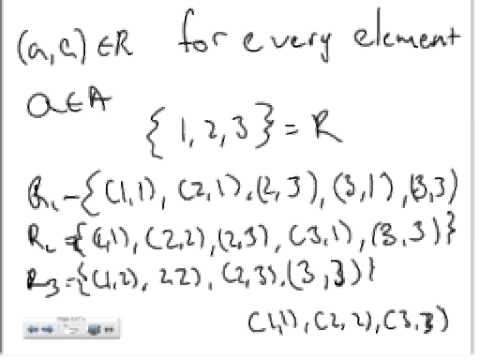 (a,a) ∈R for every element
a∈A
{1,2,3} = R
R₁ = {(1,1), (2,1), (2,3), (3,1), (3,3)
R₂ = {(1,1), (2,2), (2,3), (3,1), (3,3)}
R₃ = {(1,2), 2,2), (2,3), (3,3)}
(1,1), (2,2), (3,3)